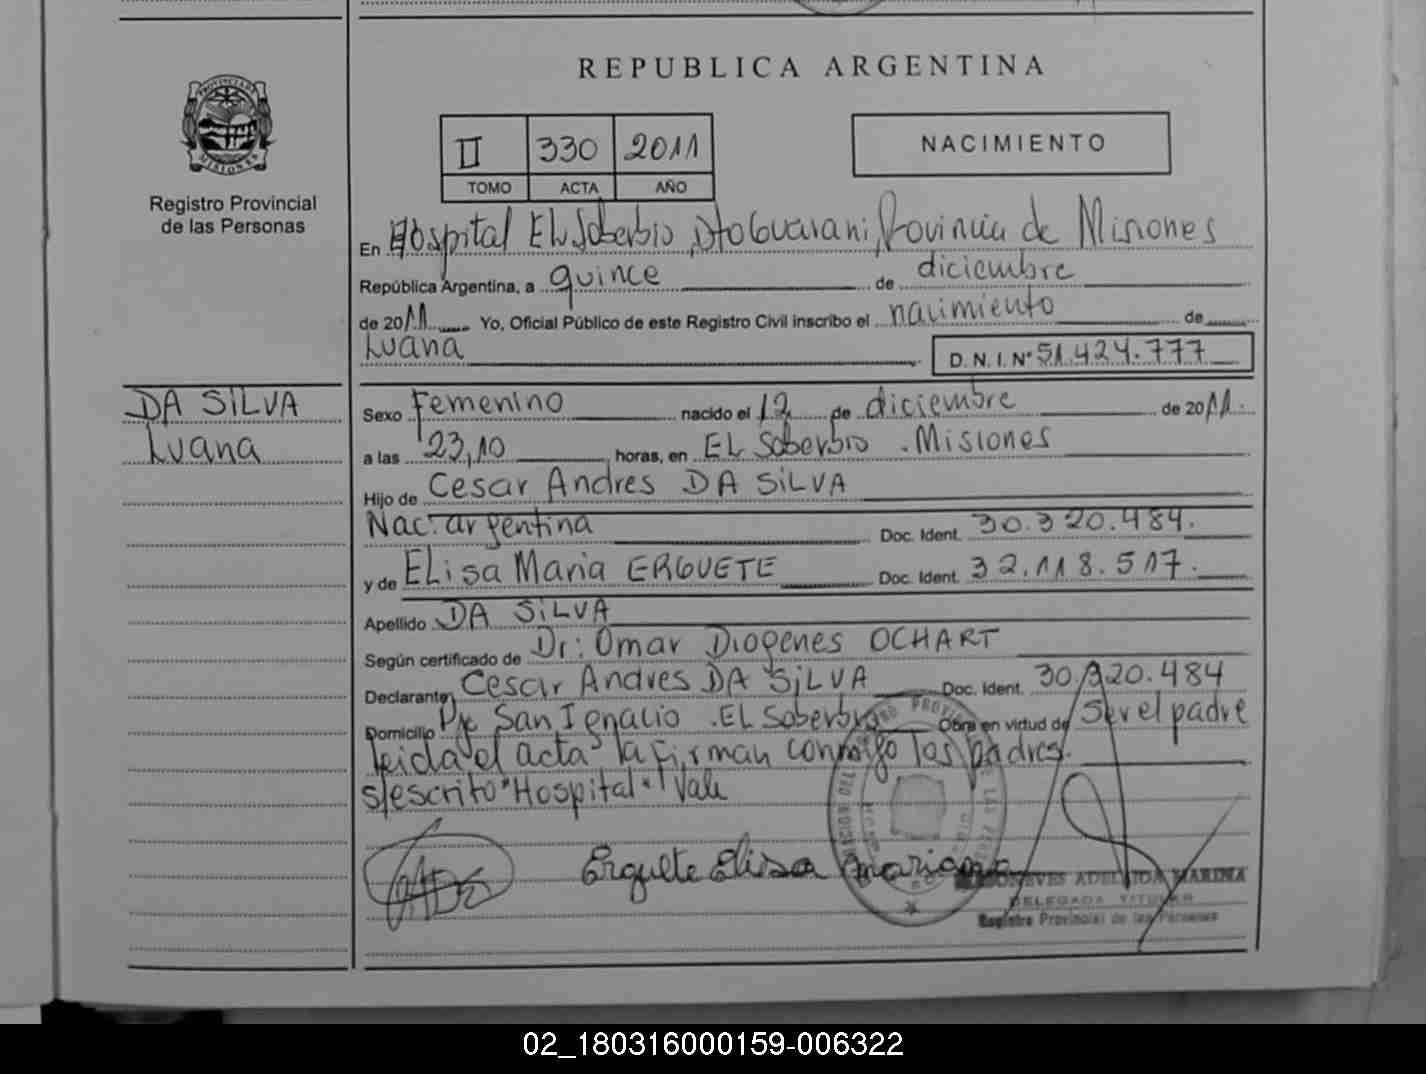 REPUBLICA ARGENTINA
II 330 2011
TOMO ACTA AÑO
NACIMIENTO
PROVINCIA DE MISIONES
Registro Provincial
de las Personas
En Hospital EL Soberbio, Dto Guarani, Provincia de Misiones
República Argentina, a quince de diciembre
de 2011 Yo, Oficial Público de este Registro Civil inscribo el nacimiento de
Luana D. N. I. N° 51.424.777
DA SILVA
Luana
Sexo Femenino nacido el 12 de diciembre de 2011.
a las 23,10 horas, en EL Soberbio . Misiones
Hijo de Cesar Andres DA SILVA
Nac. argentina Doc. Ident. 30.320.484.
y de ELisa Maria ERGUETE Doc. Ident. 32.118.517.
Apellido DA SILVA
Según certificado de Dr: Omar Diogenes OCHART
Declarante Cesar Andres DA SILVA Doc. Ident. 30.320.484
Domicilio San Ignacio . EL Soberbio Obra en virtud de ser el padre
leida el acta la firman conmigo los padres.
s/escrito "Hospital" Vale
Erguete Elisa Mariana
ADELAIDA MARINA
DELEGADA TITULAR
Registro Provincial de las Personas
02_180316000159-006322